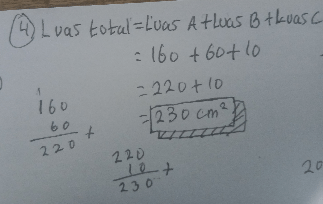 4 Luas total = Luas A + Luas B + Luas C
= 160 + 60 + 10
= 220 + 10
= 230 cm²
1
160
60 +
220
220
10 +
230
20